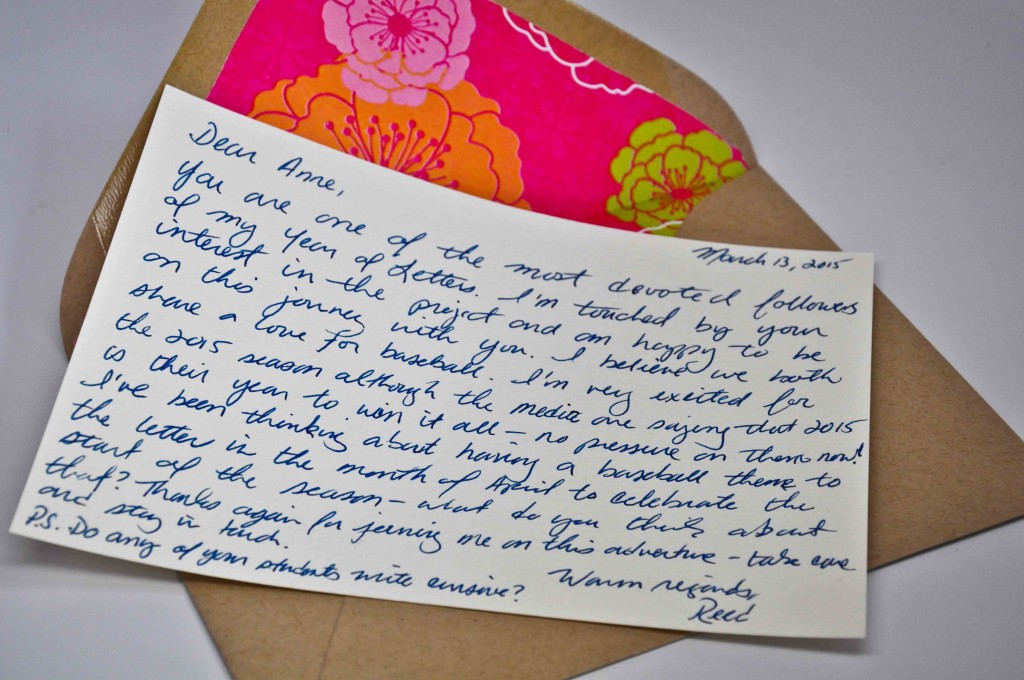 March 13, 2015
Dear Anne,
You are one of the most devoted followers
of my Year of Letters. I'm touched by your
interest in the project and am happy to be
on this journey with you. I believe we both
share a love for baseball. I'm very excited for
the 2015 season although the media are saying that 2015
is their year to win it all – no pressure on them now!
I've been thinking about having a baseball theme to
the letter in the month of April to celebrate the
start of the season – what do you think about
that? Thanks again for joining me on this adventure – take care
and stay in touch.
Warm regards,
Reid
P.S. Do any of your students write cursive?